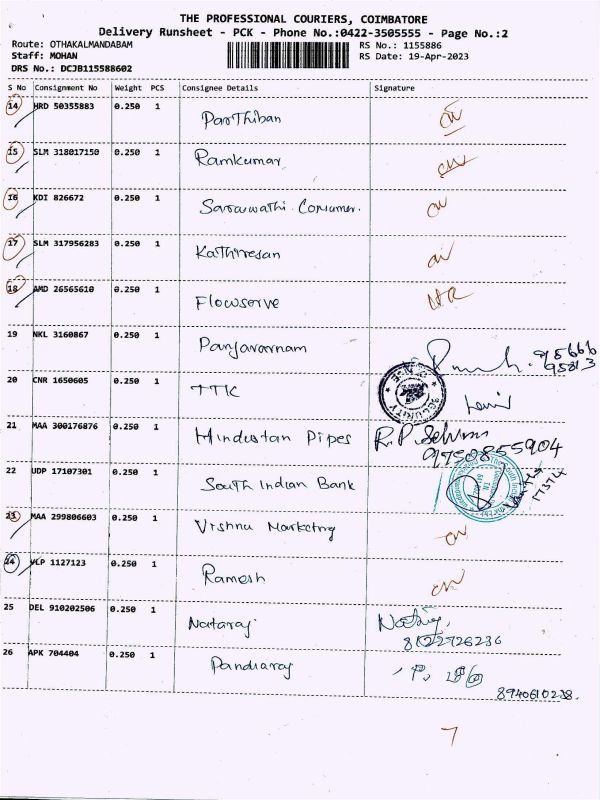 THE PROFESSIONAL COURIERS, COIMBATORE
Delivery Runsheet - PCK - Phone No.:0422-3505555 - Page No.:2
Route: OTHAKALMANDABAM RS No.: 1155886
Staff: MOHAN RS Date: 19-Apr-2023
DRS No.: DCJB115588602
S No Consignment No Weight PCS Consignee Details Signature
14 HRD 50355883 0.250 1 Parthiban
15 SLM 318017150 0.250 1 Ramkumar
16 KDI 826672 0.250 1 Saraswathi Consumer.
17 SLM 317956283 0.250 1 Kathiresan
18 AMD 26565610 0.250 1 Flowserve
19 NKL 3160867 0.250 1 Panjavarnam
20 CNR 1650605 0.250 1 TTK
SECURITY
21 MAA 300176876 0.250 1 Hindustan Pipes R.P.
9750855904
22 UDP 17107301 0.250 1 South Indian Bank
23 MAA 299806603 0.250 1 Vishnu Marketing
24 VLP 1127123 0.250 1 Ramesh
25 DEL 910202506 0.250 1 Nataraj
8122726236
26 APK 704404 0.250 1 Pandiaraj
7